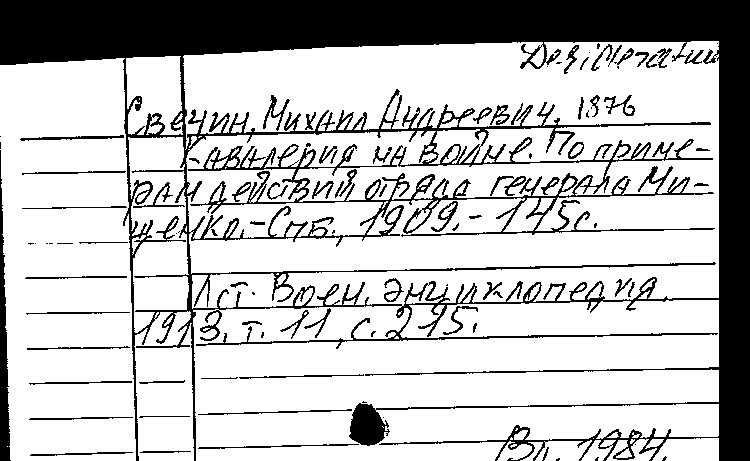 Desideratum
Свечин, Михаил Андреевич, 1876
Кавалерия на войне. По приме-
рам действий отряда генерала Ми-
щенко.-Спб., 1909.- 145с.
Ист. Воен. энциклопедия.
1913. т. 11, с. 215.
Вл. 1984.